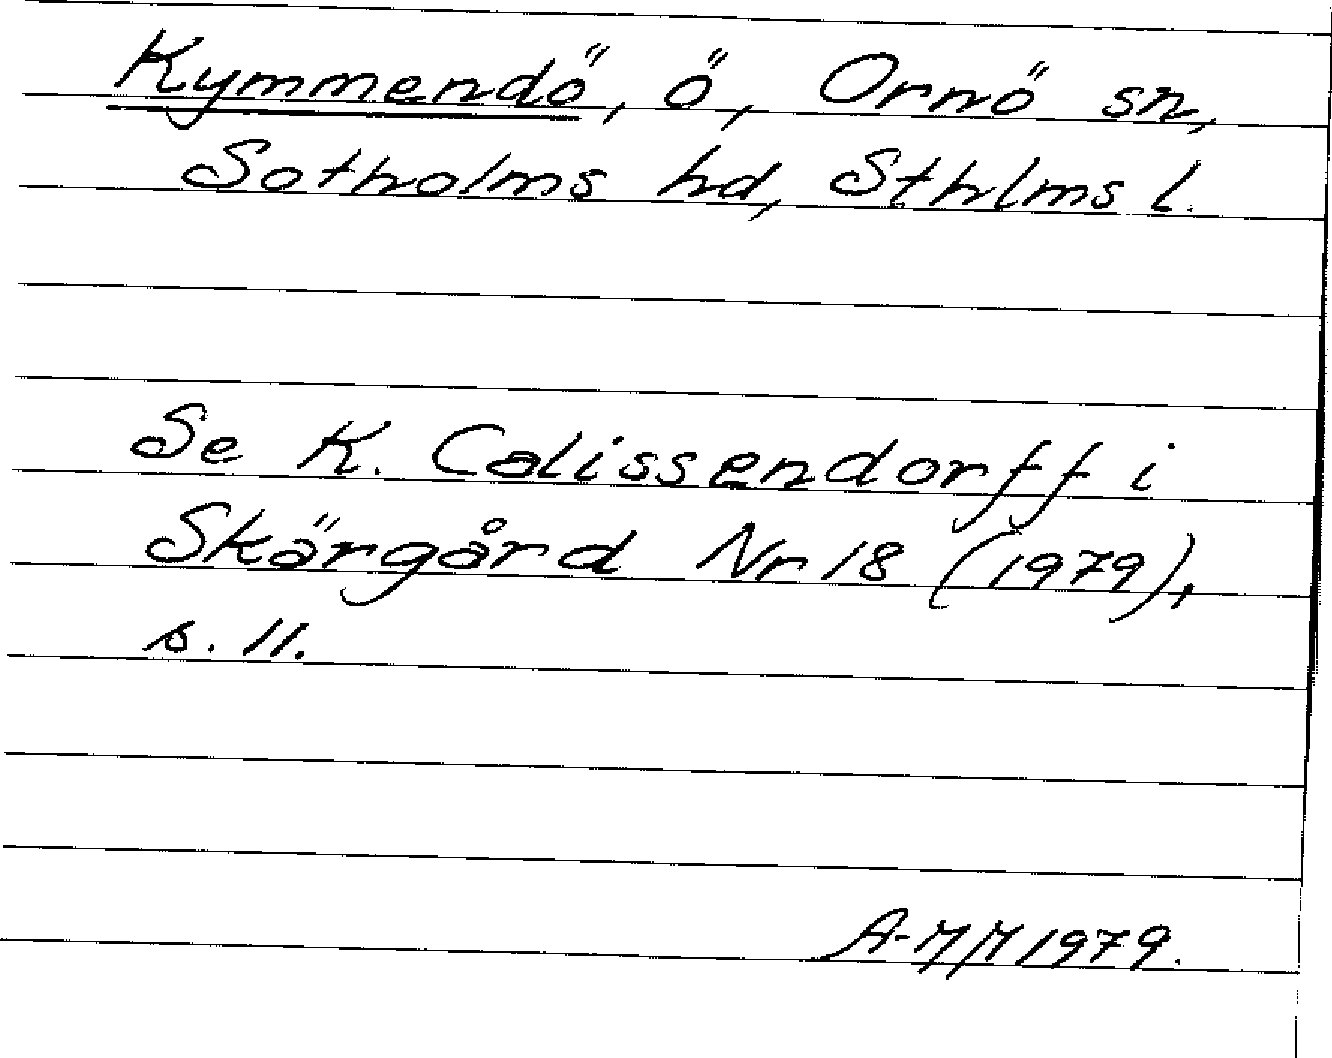 Kymmendö, ö, Ornö sn,
Sotholms hd, Sthlms l.
Se K. Calissendorff i
Skärgård Nr 18 (1979),
s. 11.
A-MM 1979.